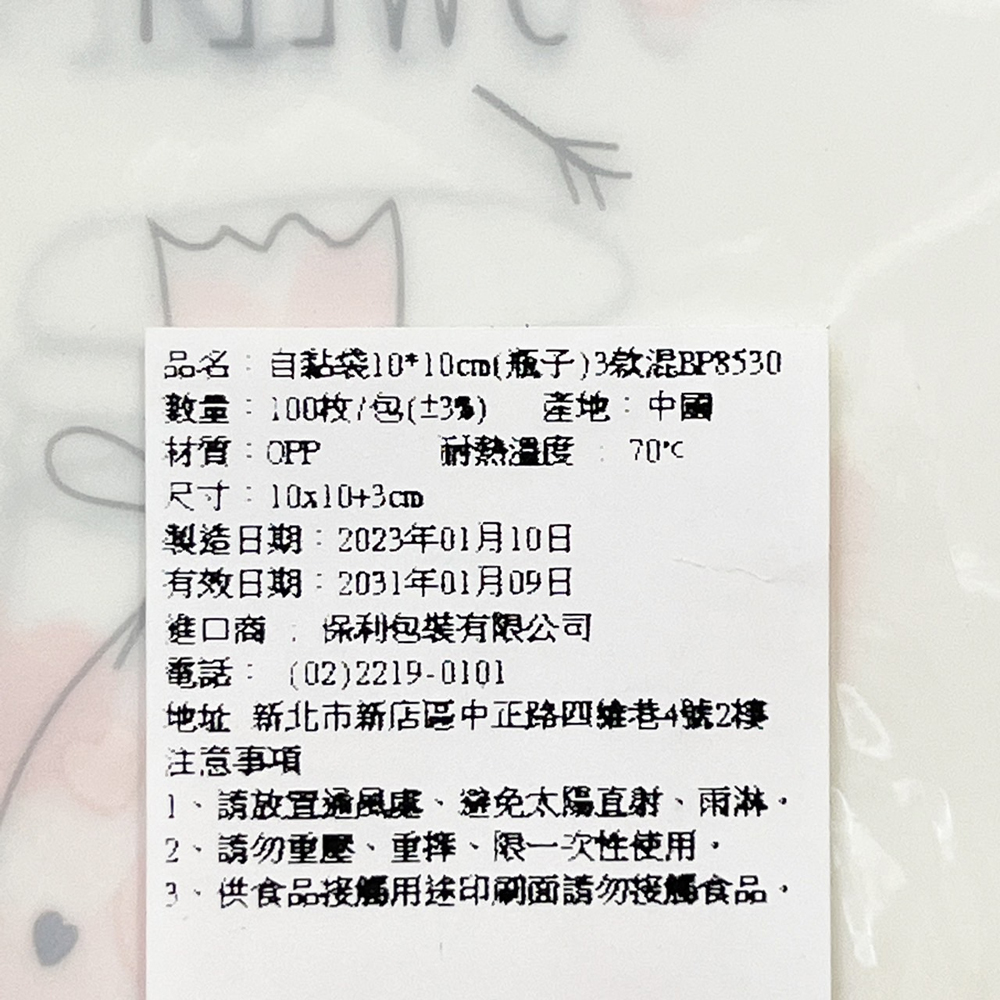 SWEET
品名：自黏袋10*10cm(瓶子)3款混BP8530
數量：100枚/包(±3%) 產地：中國
材質：OPP 耐熱溫度：70℃
尺寸：10x10+3cm
製造日期：2023年01月10日
有效日期：2031年01月09日
進口商：保利包裝有限公司
電話：(02)2219-0101
地址 新北市新店區中正路四維巷4號2樓
注意事項
1、請放置通風處、避免太陽直射、雨淋。
2、請勿重壓、重摔、限一次性使用。
3、供食品接觸用途印刷面請勿接觸食品。